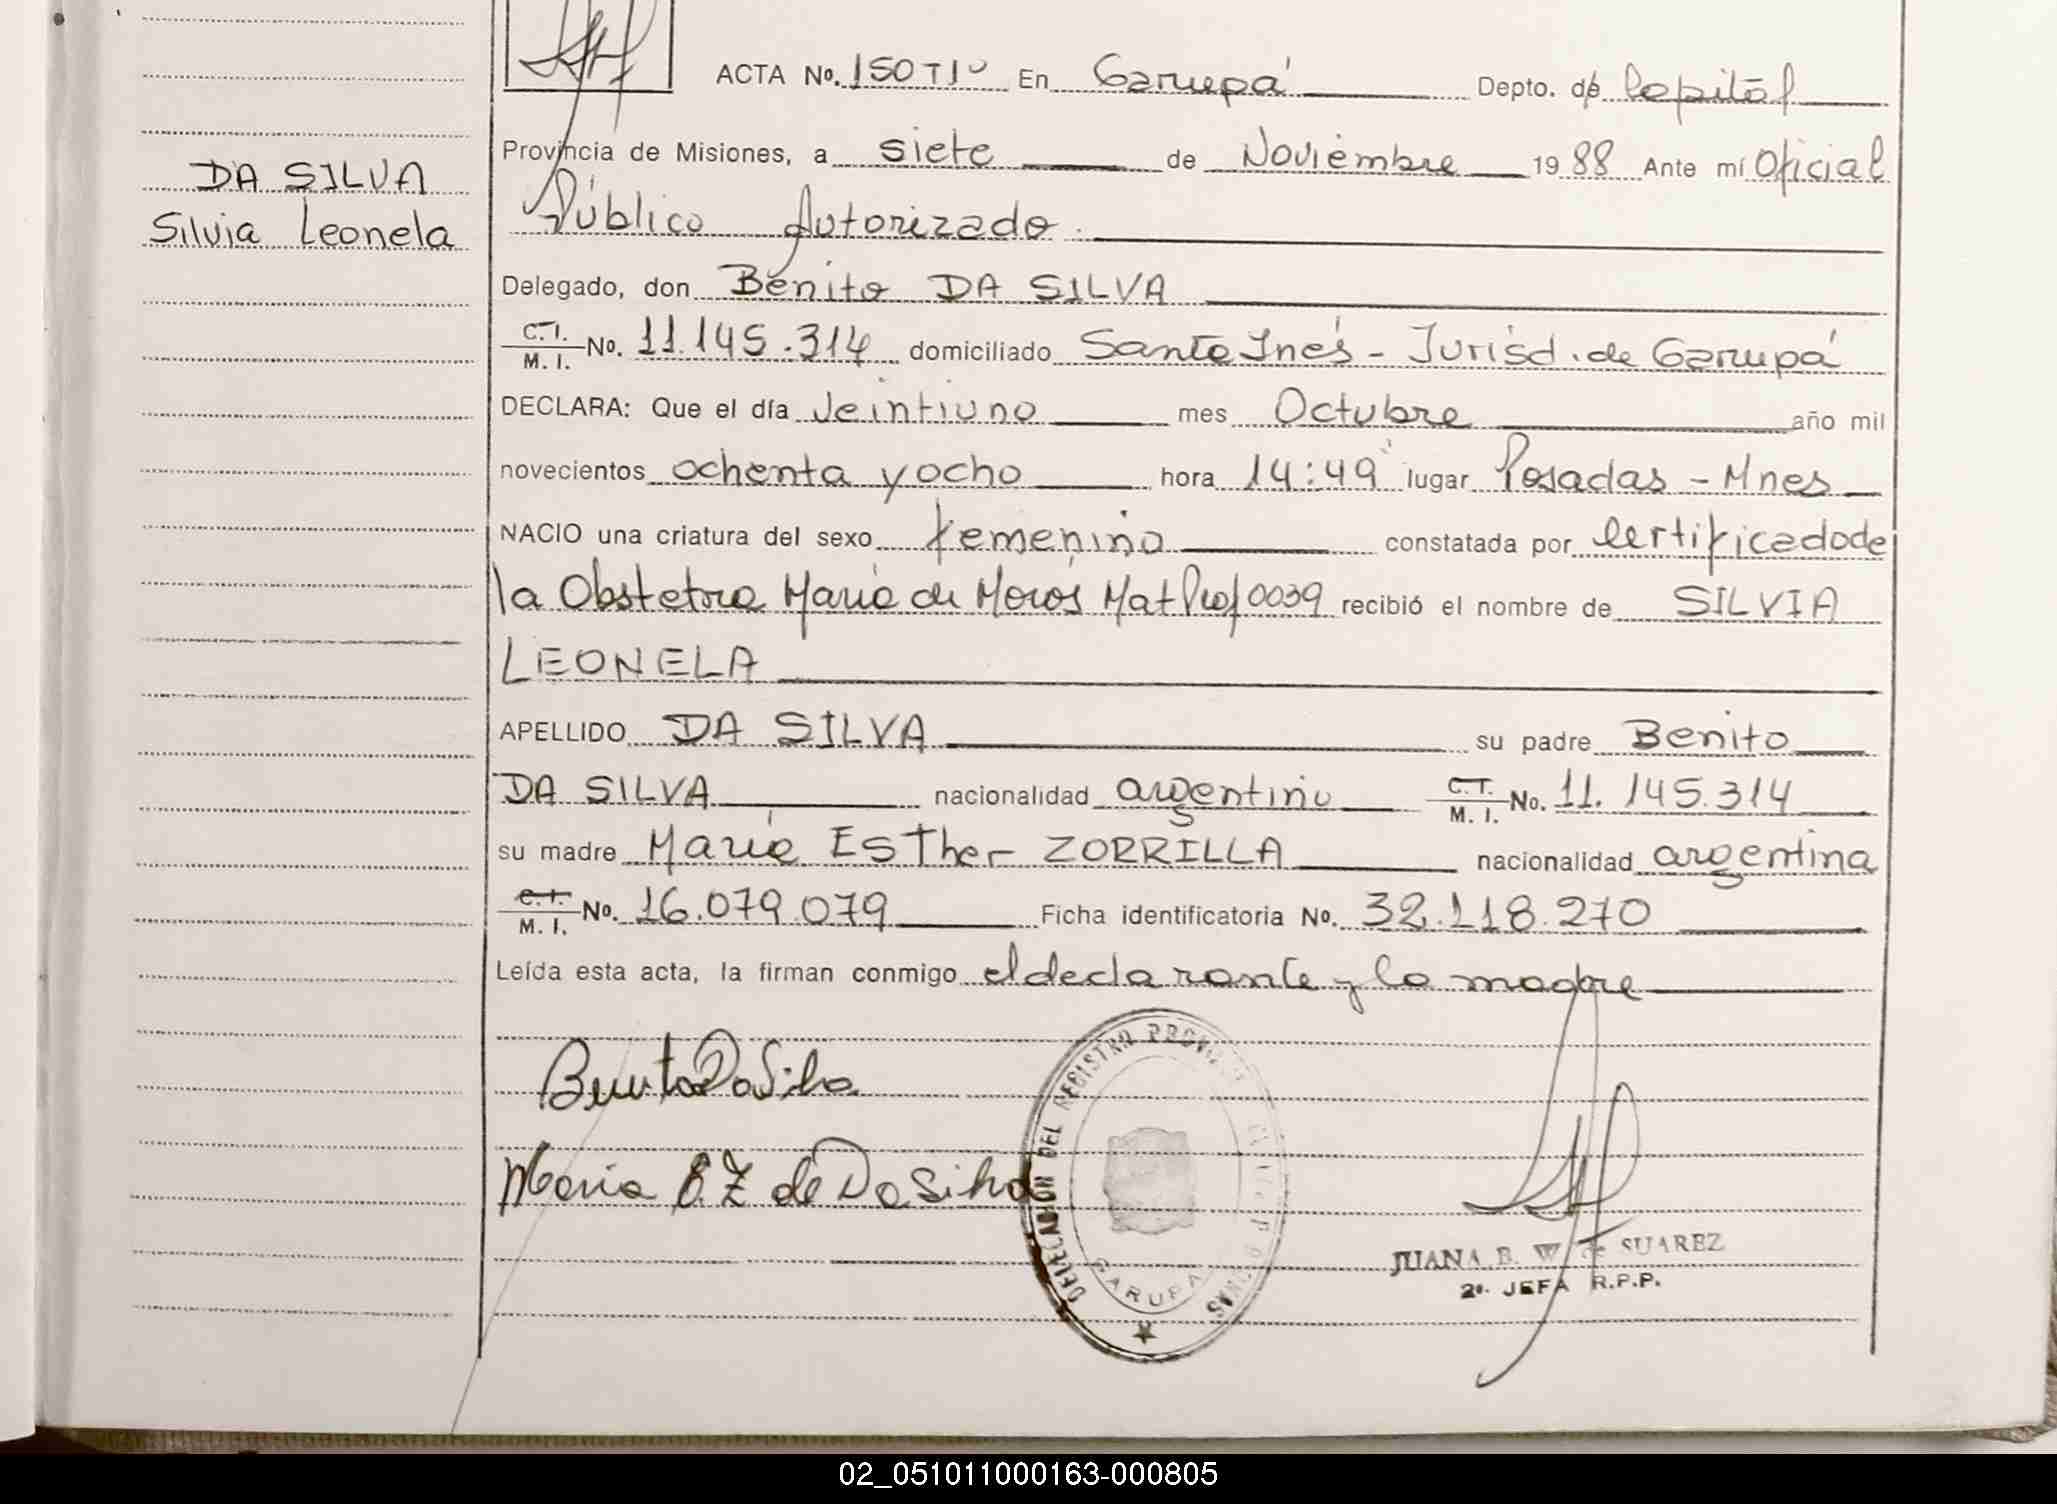 ACTA No. 150 T I° En Garupá Depto. de Capital
Provincia de Misiones, a siete de Noviembre 1988 Ante mí Oficial
DA SILVA
Público Autorizado.
Silvia Leonela
Delegado, don Benito DA SILVA
C.I. M. I. No. 11.145.314 domiciliado Santa Inés - Jurisd. de Garupá
DECLARA: Que el día Veintiuno mes Octubre año mil
novecientos ochenta y ocho hora 14:49 lugar Posadas - Mnes
NACIO una criatura del sexo femenino constatada por Certificado de
la Obstetra María de Mat Prof 0039 recibió el nombre de SILVIA
LEONELA
APELLIDO DA SILVA su padre Benito
DA SILVA nacionalidad argentino C.I. M. I. No. 11.145.314
su madre María Esther ZORRILLA nacionalidad argentina
C.I. M. I. No. 16.079.079 Ficha identificatoria No. 32.118.270
Leída esta acta, la firman conmigo el declarante y la madre
Benito Da Silva
Maria E. Z de Da Silva
DELEGACION DEL REGISTRO PROVINCIAL DE LAS PERSONAS
GARUPA
JUANA B. W de SUAREZ
2º. JEFA R.P.P.
02_051011000163-000805